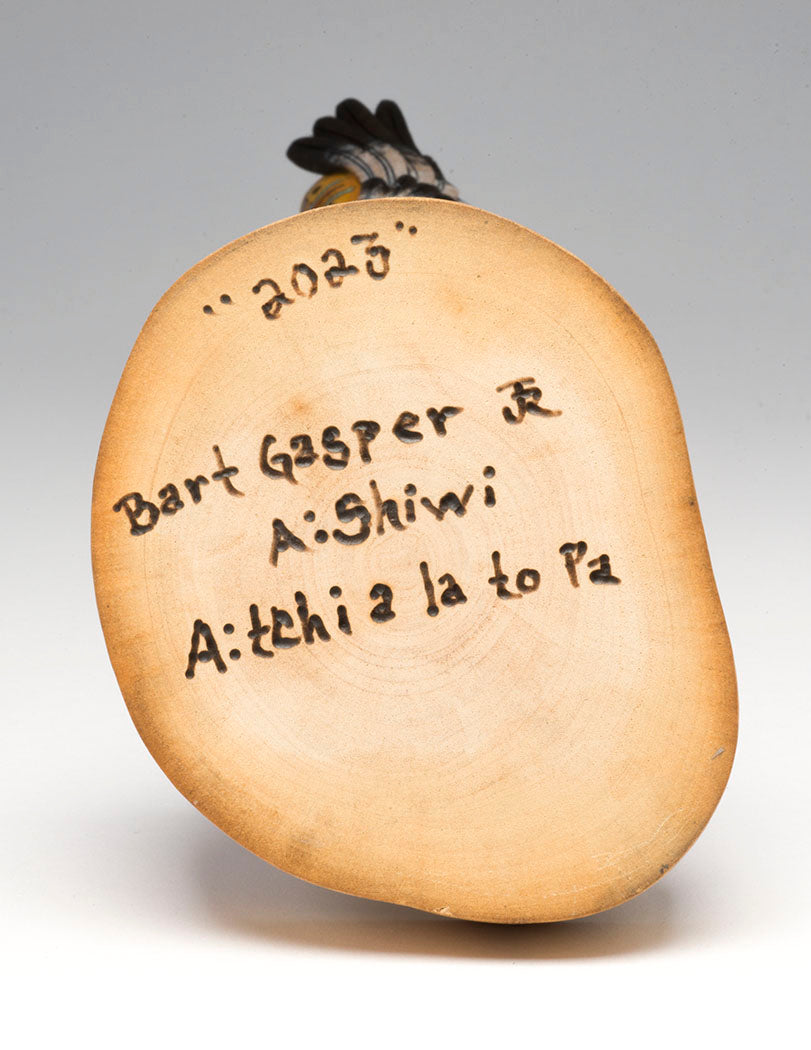 "2023"
Bart Gasper JR
A:Shiwi
A:tchi a la to Pa